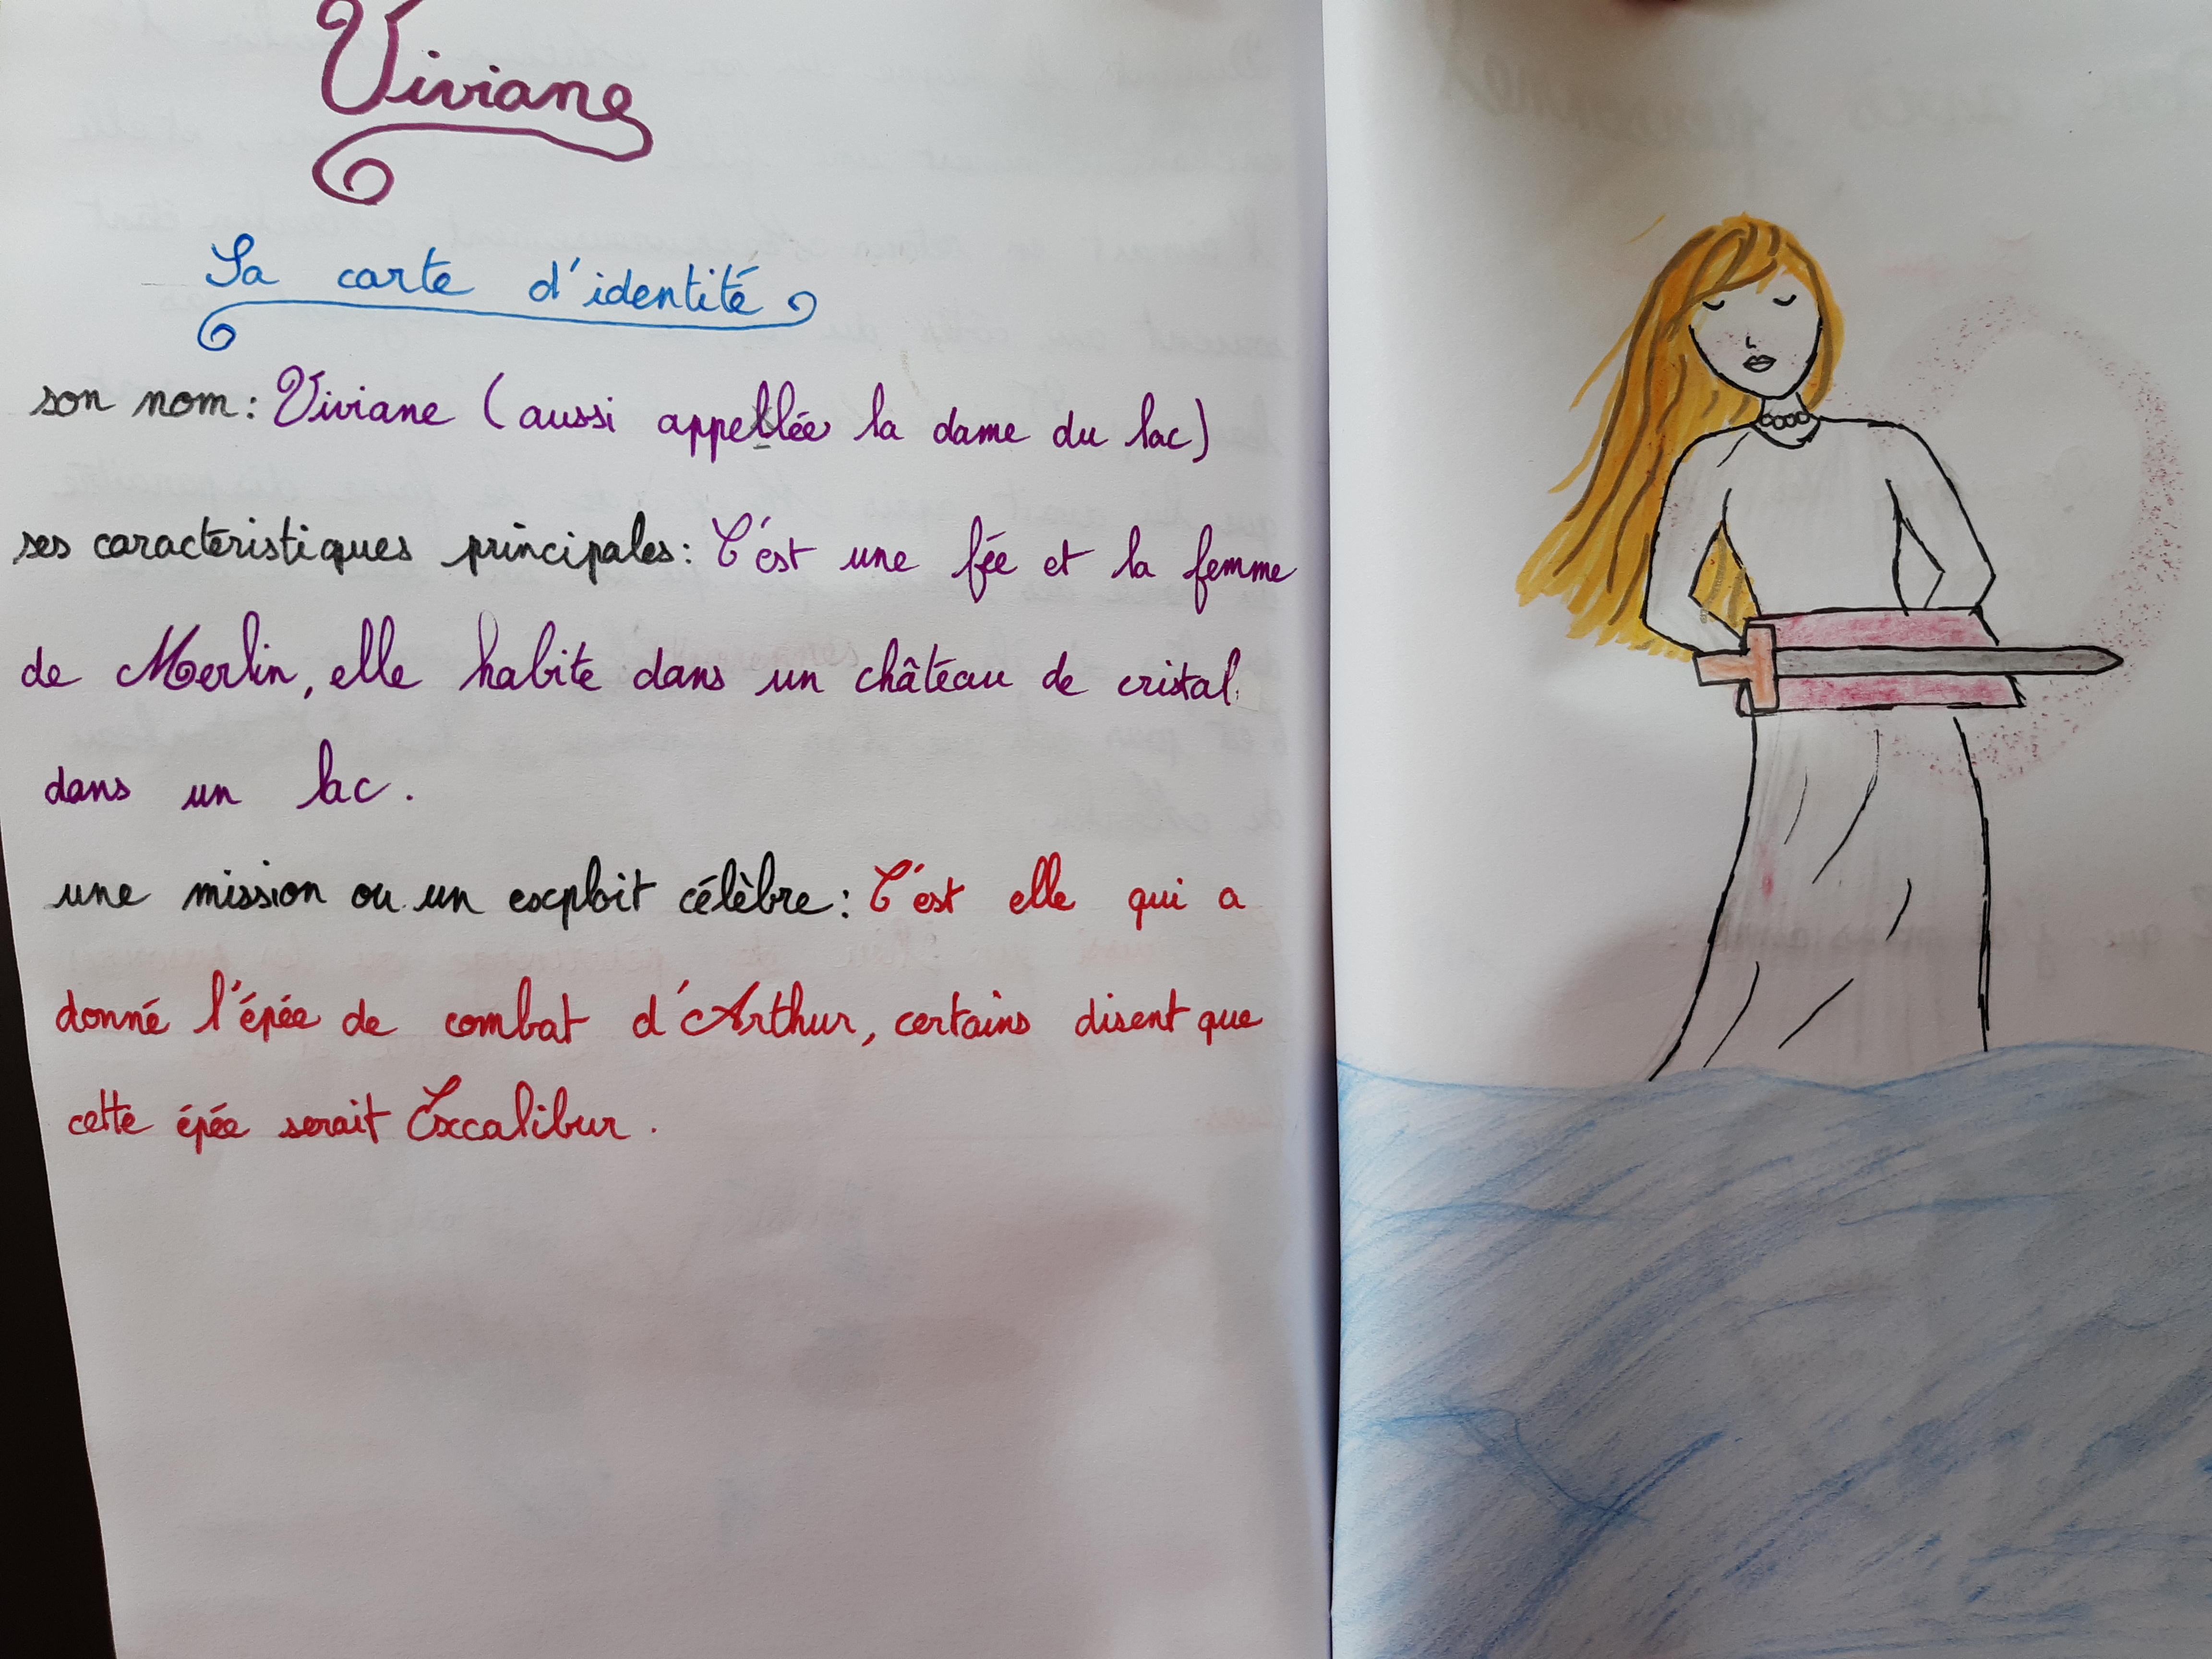 Viviane
Sa carte d'identité
son nom: Viviane (aussi appellée la dame du lac)
ses caractéristiques principales: C'est une fée et la femme
de Merlin, elle habite dans un château de cristal
dans un lac.
une mission ou un exploit célèbre: C'est elle qui a
donné l'épée de combat d'Arthur, certains disent que
cette épée serait Excalibur.